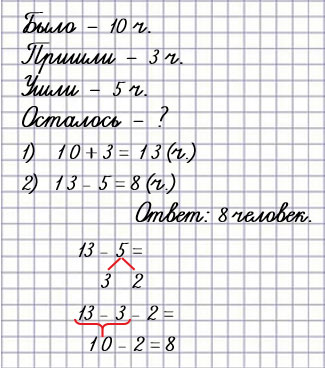 Было – 10 ч.
Пришли – 3 ч.
Ушли – 5 ч.
Осталось – ?
1) 10 + 3 = 13 (ч.)
2) 13 – 5 = 8 (ч.)
Ответ: 8 человек.
13 – 5 =
3 2
13 – 3 – 2 =
10 – 2 = 8